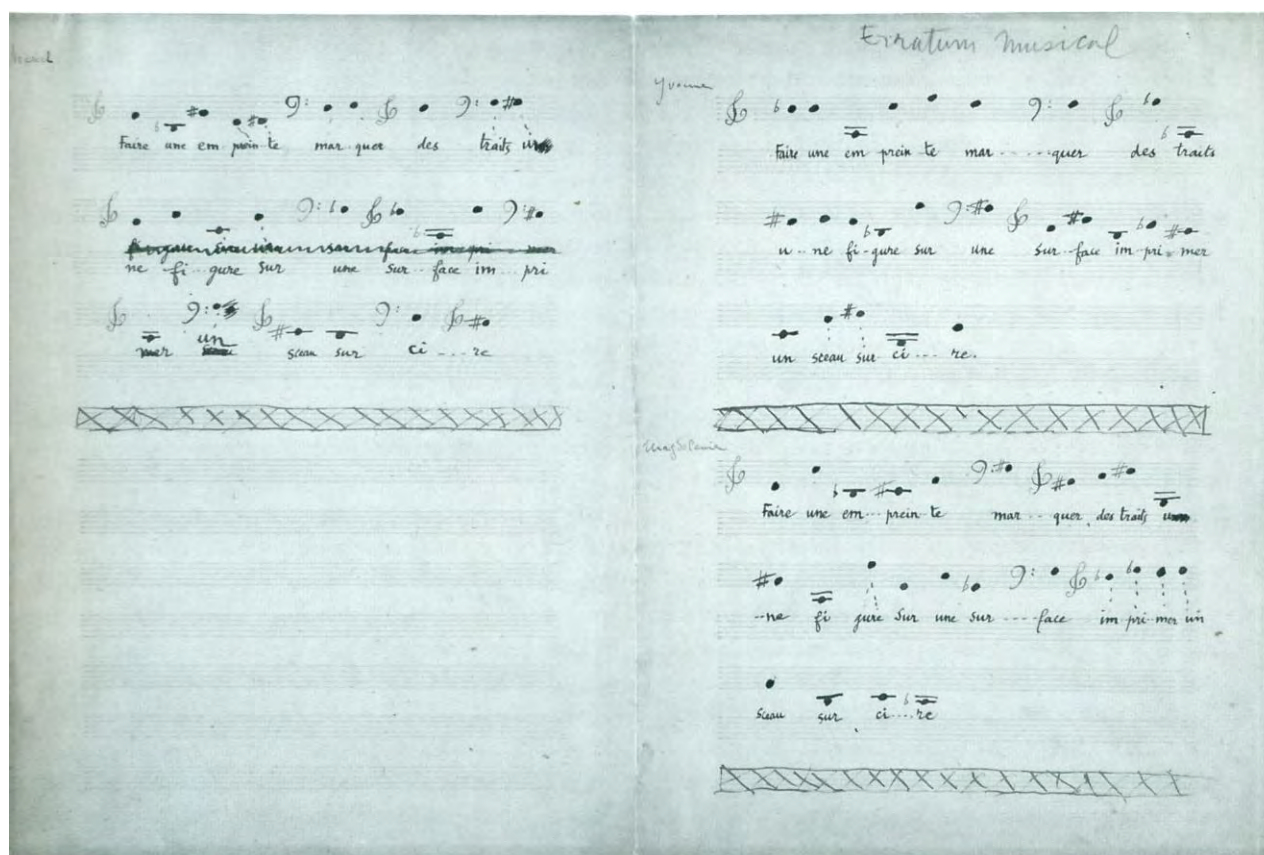 Faire une em prein te mar..quer des traits u
ne fi...gure sur une sur..face im...pri
mer un sceau sur ci....re
Erratum Musical
Yvonne
Faire une em prein te mar.....quer des traits
u..ne fi-gure sur une sur-face im-pri-mer
un sceau sur ci....re.
Faire une em...prein te mar...quer des traits u
--ne fi gure sur une sur....face im pri mer un
sceau sur ci....re